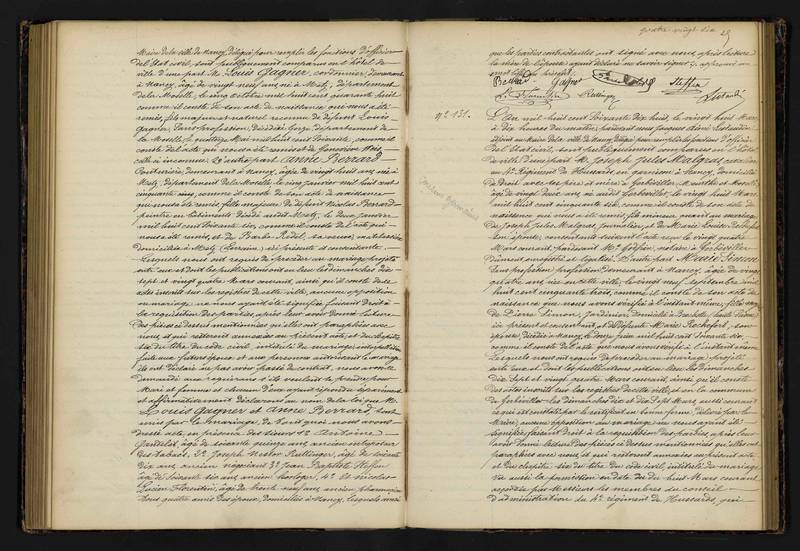 Maire de la ville de Nancy, délégué pour remplir les fonctions d'officier
de l'état civil, sont publiquement comparus en l'hôtel de
ville d'une part M. Louis Gagner, cordonnier, demeurant
à Nancy, âgé de vingt neuf ans, né à Metz, département
de la Moselle, le cinq octobre mil huit cent quarante huit
comme il conste de son acte de naissance qui nous a été
remis, fils majeur et naturel reconnu de défunt Louis
Gagner, sans profession, décédé à Gorze, département de
la Moselle, le quatorze mil huit cent soixante, comme il
conste de l'acte qui nous a été remis et de
D'autre part Anne Berrard
Couturière, demeurant à Nancy, âgée de vingt huit ans, née à
Metz, département de la Moselle le cinq janvier mil huit cent
cinquante, comme il conste de son acte de naissance
qui nous a été remis, fille majeure de défunt Nicolas Berrard
peintre en bâtiments décédé audit Metz, le deux janvier
mil huit cent soixante six, comme il conste de l'acte qui
nous a été remis et de Barbe Ridel, sa veuve,
domiciliée à Metz (Lorraine) ici présente et consentante.
Lesquels nous ont requis de procéder au mariage projeté
entre eux et dont les publications ont eu lieu les dimanches dix
sept et vingt quatre Mars courant, ainsi qu'il conste de
actes inscrits sur les registres de cette ville, aucune opposition
au mariage ne nous ayant été signifiée faisant droit à
la réquisition des parties, après leur avoir donné lecture
des pièces ci dessus mentionnées qu'elles ont paraphées avec
nous, et qui resteront annexées au présent acte, et du chapitre
six du titre du code civil intitulé du mariage, interpellation
faite aux futurs époux et aux personnes autorisant le mariage
ils ont déclaré ne pas avoir passé de contrat, nous avons
demandé aux requérans s'ils veulent se prendre pour
Mari et femme et chacun d'eux ayant répondu séparément
et affirmativement déclarons au nom de la loi que M.
Louis Gagner et Anne Berrard, sont
unis par le mariage, de tout quoi nous avons
dressé acte, en présence des sieurs 1° Antoine
âgé de soixante quinze ans, ancien
des tabacs, 2° Joseph Nestor Rullinger, âgé de soixante
dix ans, ancien négociant 3° Jean Baptiste Steffen
âgé de soixante six ans, ancien horloger, 4° et Nicolas
Lucien Florentin, âgé de trente neuf ans, ancien pharmacien
tous quatre amis des époux, domiciliés à Nancy, lesquels ainsi
quatre vingt six
que les parties contractantes ont signé avec nous, après lecture
la mère de l'épouse ayant déclaré ne savoir signer
Berrard Gagner Steffen
Rullinger
N° 131.
L'an mil huit cent soixante dix huit, le vingt huit Mars
à dix heures du matin, pardevant nous
adjoint au Maire de la ville de Nancy, délégué pour remplir les fonctions d'officier
de l'état civil, sont publiquement comparus en l'hôtel
de ville, d'une part M. Joseph Jules Malgras, cavalier
au 4e Régiment de Hussards, en garnison à Nancy, domicilié
de droit avec ses père et mère à Gerbéviller, Meurthe et Moselle
âgé de vingt deux ans, né audit Gerbéviller, le vingt huit Mars
mil huit cent cinquante six, comme il conste de son acte de
naissance qui nous a été remis, fils mineur quant au mariage
de Joseph Jules Malgras, journalier, et de Marie Louise
son épouse, consentants suivant acte reçu le vingt
Mars courant, pardevant Me notaire à Gerbéviller
dûment enregistré et légalisé. D'autre part Marie Simon
sans profession demeurant à Nancy, âgée de vingt
quatre ans, née en cette ville, le vingt neuf septembre mil
huit cent cinquante trois, comme il conste de son acte de
naissance que nous avons vérifié à l'instant même, fille majeure
de Pierre Simon, jardinier, domicilié à
ici présent et consentant, et de défunte Marie Rochefort, son
épouse, décédée à Nancy, le douze juin mil huit cent soixante dix,
comme il conste de l'acte que nous avons vérifié à l'instant même.
Lesquels nous ont requis de procéder au mariage projeté
entre eux et dont les publications ont eu lieu les dimanches
dix sept et vingt quatre Mars courant, ainsi qu'il conste
des actes inscrits sur les registres de cette ville, et en la commune
de Gerbéviller les dimanches dix et dix sept Mars, aussi courant
ce qui est constaté par le certificat en bonne forme, délivré par le
Maire; aucune opposition au mariage ne nous ayant été
signifiée faisant droit à la réquisition des parties, après leur
avoir donné lecture des pièces ci dessus mentionnées qu'elles ont
paraphées avec nous, et qui resteront annexées au présent acte
et du chapitre six du titre du code civil, intitulé du mariage
vu aussi la permission en date du dix huit Mars courant
accordée par Messieurs les membres du conseil
d'administration du 4e régiment de Hussards, qui